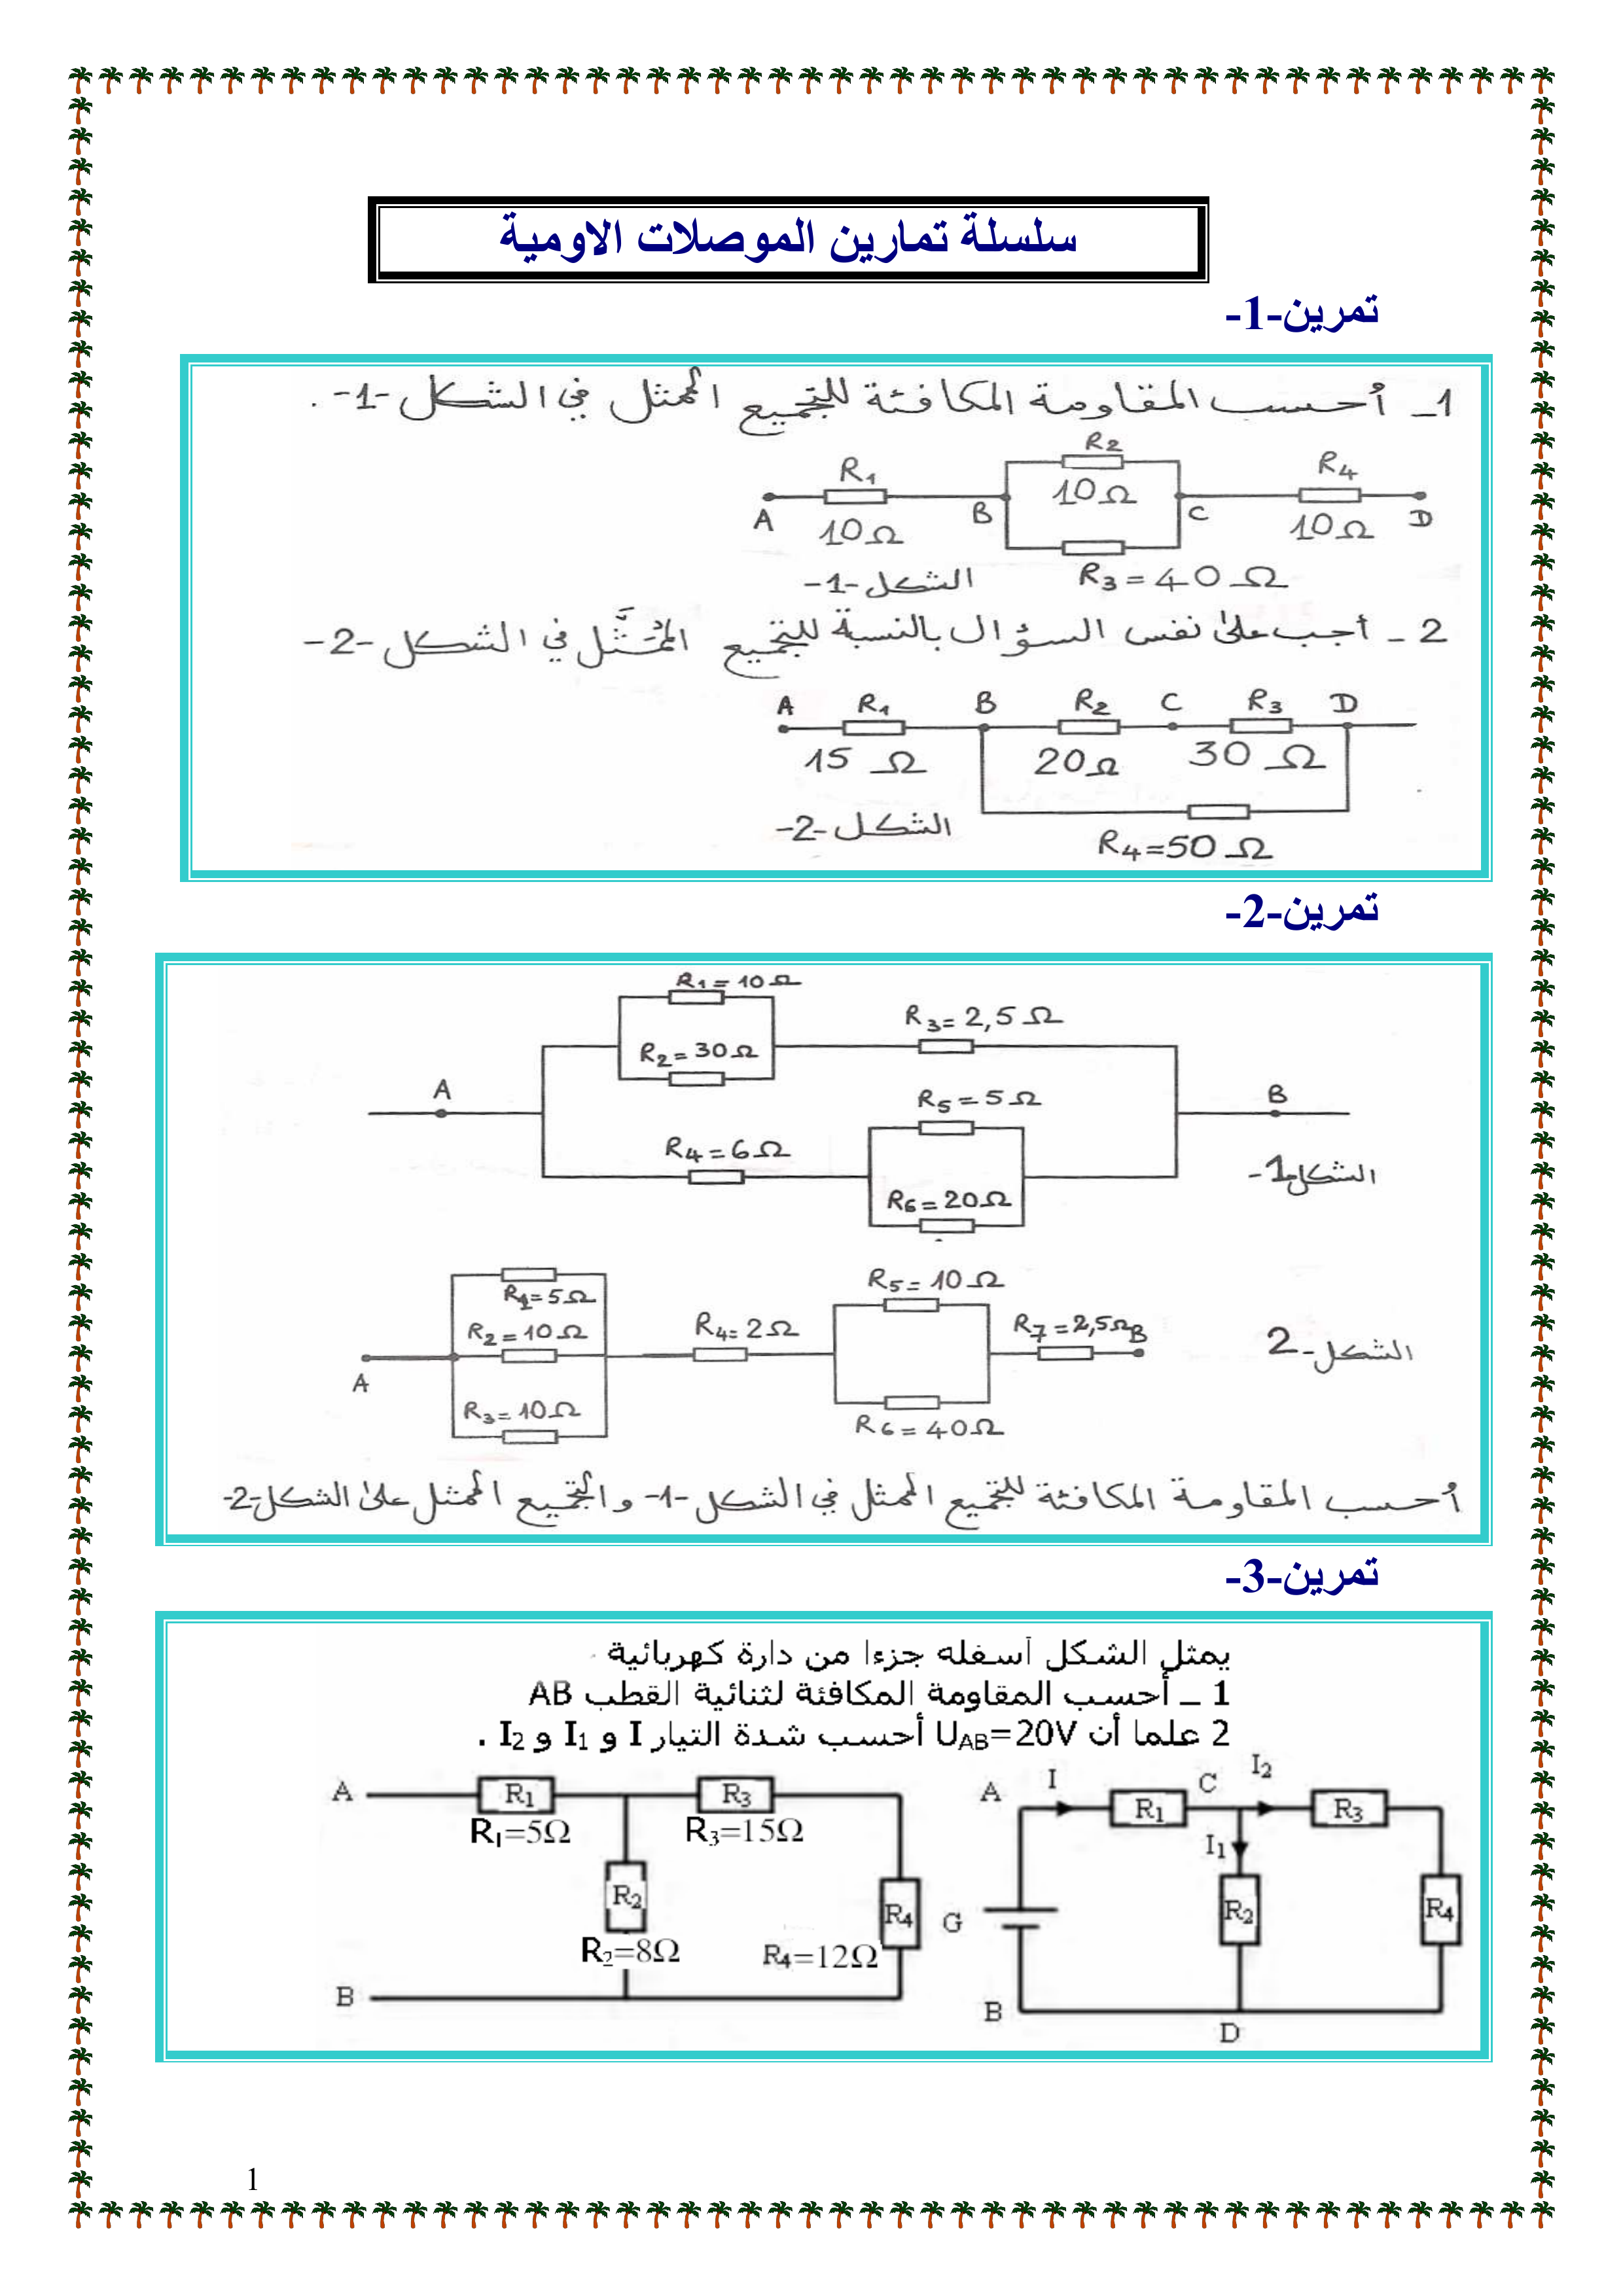 سلسلة تمارين الموصلات الاومية
تمرين-1-
1_ أحسب المقاومة المكافئة للتجميع الممثل في الشكل-1- .
R2
R1 10Ω R4
A 10Ω B C 10Ω D
الشكل-1- R3=40Ω
2 - أجب على نفس السؤال بالنسبة للتجميع المُمَثَّل في الشكل-2-
A R1 B R2 C R3 D
15 Ω 20Ω 30 Ω
الشكل-2-
R4=50 Ω
تمرين-2-
R1=10Ω
R3=2,5Ω
R2=30Ω
A B
R5=5Ω
R4=6Ω
الشكل1-
R6=20Ω
R5=10Ω
R1=5Ω
R2=10Ω R4=2Ω R7=2,5Ω B
الشكل-2
A
R3=10Ω
R6=40Ω
أحسب المقاومة المكافئة للتجميع الممثل في الشكل-1- والتجميع الممثل على الشكل-2-
تمرين-3-
يمثل الشكل أسفله جزءا من دارة كهربائية
1 _ أحسب المقاومة المكافئة لثنائية القطب AB
2 علما أن UAB=20V أحسب شدة التيار I و I1 و I2 .
A R1 R3
R1=5Ω R3=15Ω
R2 R4
R2=8Ω R4=12Ω
B
A I R1 C I2 R3
I1
G R2 R4
B D
1